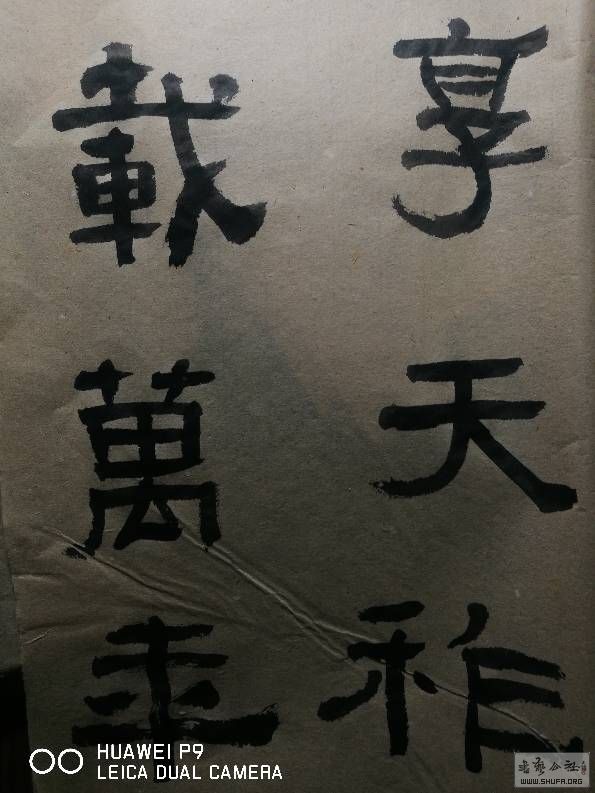 享天祚
載萬年
HUAWEI P9
LEICA DUAL CAMERA
书艺公社
WWW.SHUFA.ORG